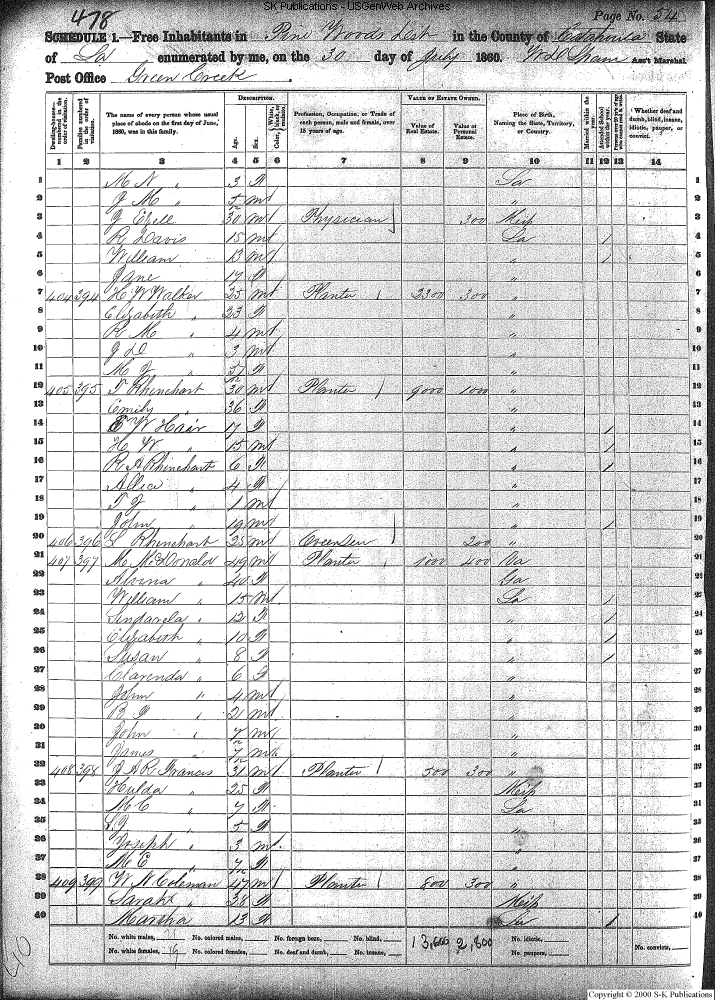 SK Publications - USGenWeb Archives
478
Page No. 54
SCHEDULE 1.—Free Inhabitants in Pine Woods Dist in the County of Catahoula State
of La enumerated by me, on the 30 day of July 1860. Ass't Marshal.
Post Office Green Creek
Dwelling-houses—numbered in the order of visitation.
Families numbered in the order of visitation.
The name of every person whose usual place of abode on the first day of June, 1860, was in this family.
DESCRIPTION.
Age.
Sex.
Color, White, black, or mulatto.
Profession, Occupation, or Trade of each person, male and female, over 15 years of age.
VALUE OF ESTATE OWNED.
Value of Real Estate.
Value of Personal Estate.
Place of Birth, Naming the State, Territory, or Country.
Married within the year.
Attended School within the year.
Whether deaf and dumb, blind, insane, idiotic, pauper, or convict.
1 2 3 4 5 6 7 8 9 10 11 12 13 14
1 M N " 3 f La 1
2 J M " m " 2
3 J Ebell 30 m Physician 300 Missp 3
4 R Davis 15 m La / 4
5 William 13 m " / 5
6 Jane 17 f " 6
7 404 394 H W Walker 25 m Planter 2300 300 " 7
8 Elizabeth " 23 f " 8
9 R M " 4 m " 9
10 J D " 3 m " 10
11 M J " f " 11
12 405 395 T Rhinehart 30 m Planter 9000 1000 " 12
13 Emily " 36 f " 13
14 E W Hair 17 f " / 14
15 H W " 15 m " / 15
16 R A Rhinehart 6 f " / 16
17 Allice " 4 f " 17
18 T J " 1 m " 18
19 John " 19 m " / 19
20 406 396 S Rhinehart 35 m Overseer 200 " 20
21 407 397 M McDonald 49 m Planter 1000 400 Va 21
22 Alvina " 40 f Ga 22
23 William " 15 m La / 23
24 Sindarela " 12 f " / 24
25 Elizabeth " 10 f " / 25
26 Susan " 8 f " / 26
27 Clarenda " 6 f " 27
28 John " 4 m " 28
29 B F " 21 m " 29
30 John " m " 30
31 James " m " 31
32 408 398 J A R Francis 31 m Planter 500 300 " 32
33 Hulda " 25 f Missp 33
34 M C " 7 f La 34
35 S J " 5 f " 35
36 Joseph " 3 m " 36
37 M E " f " 37
38 409 399 W N Coleman 47 m Planter 800 300 " 38
39 Sarah " 38 f Missp 39
40 Martha 13 f La / 40
No. white males, 21 No. colored males, No. foreign born, No. blind, 13,600 2,800 No. idiotic,
No. white females, 19 No. colored females, No. deaf and dumb, No. insane, No. paupers, No. convicts,
Copyright © 2000 S-K Publications